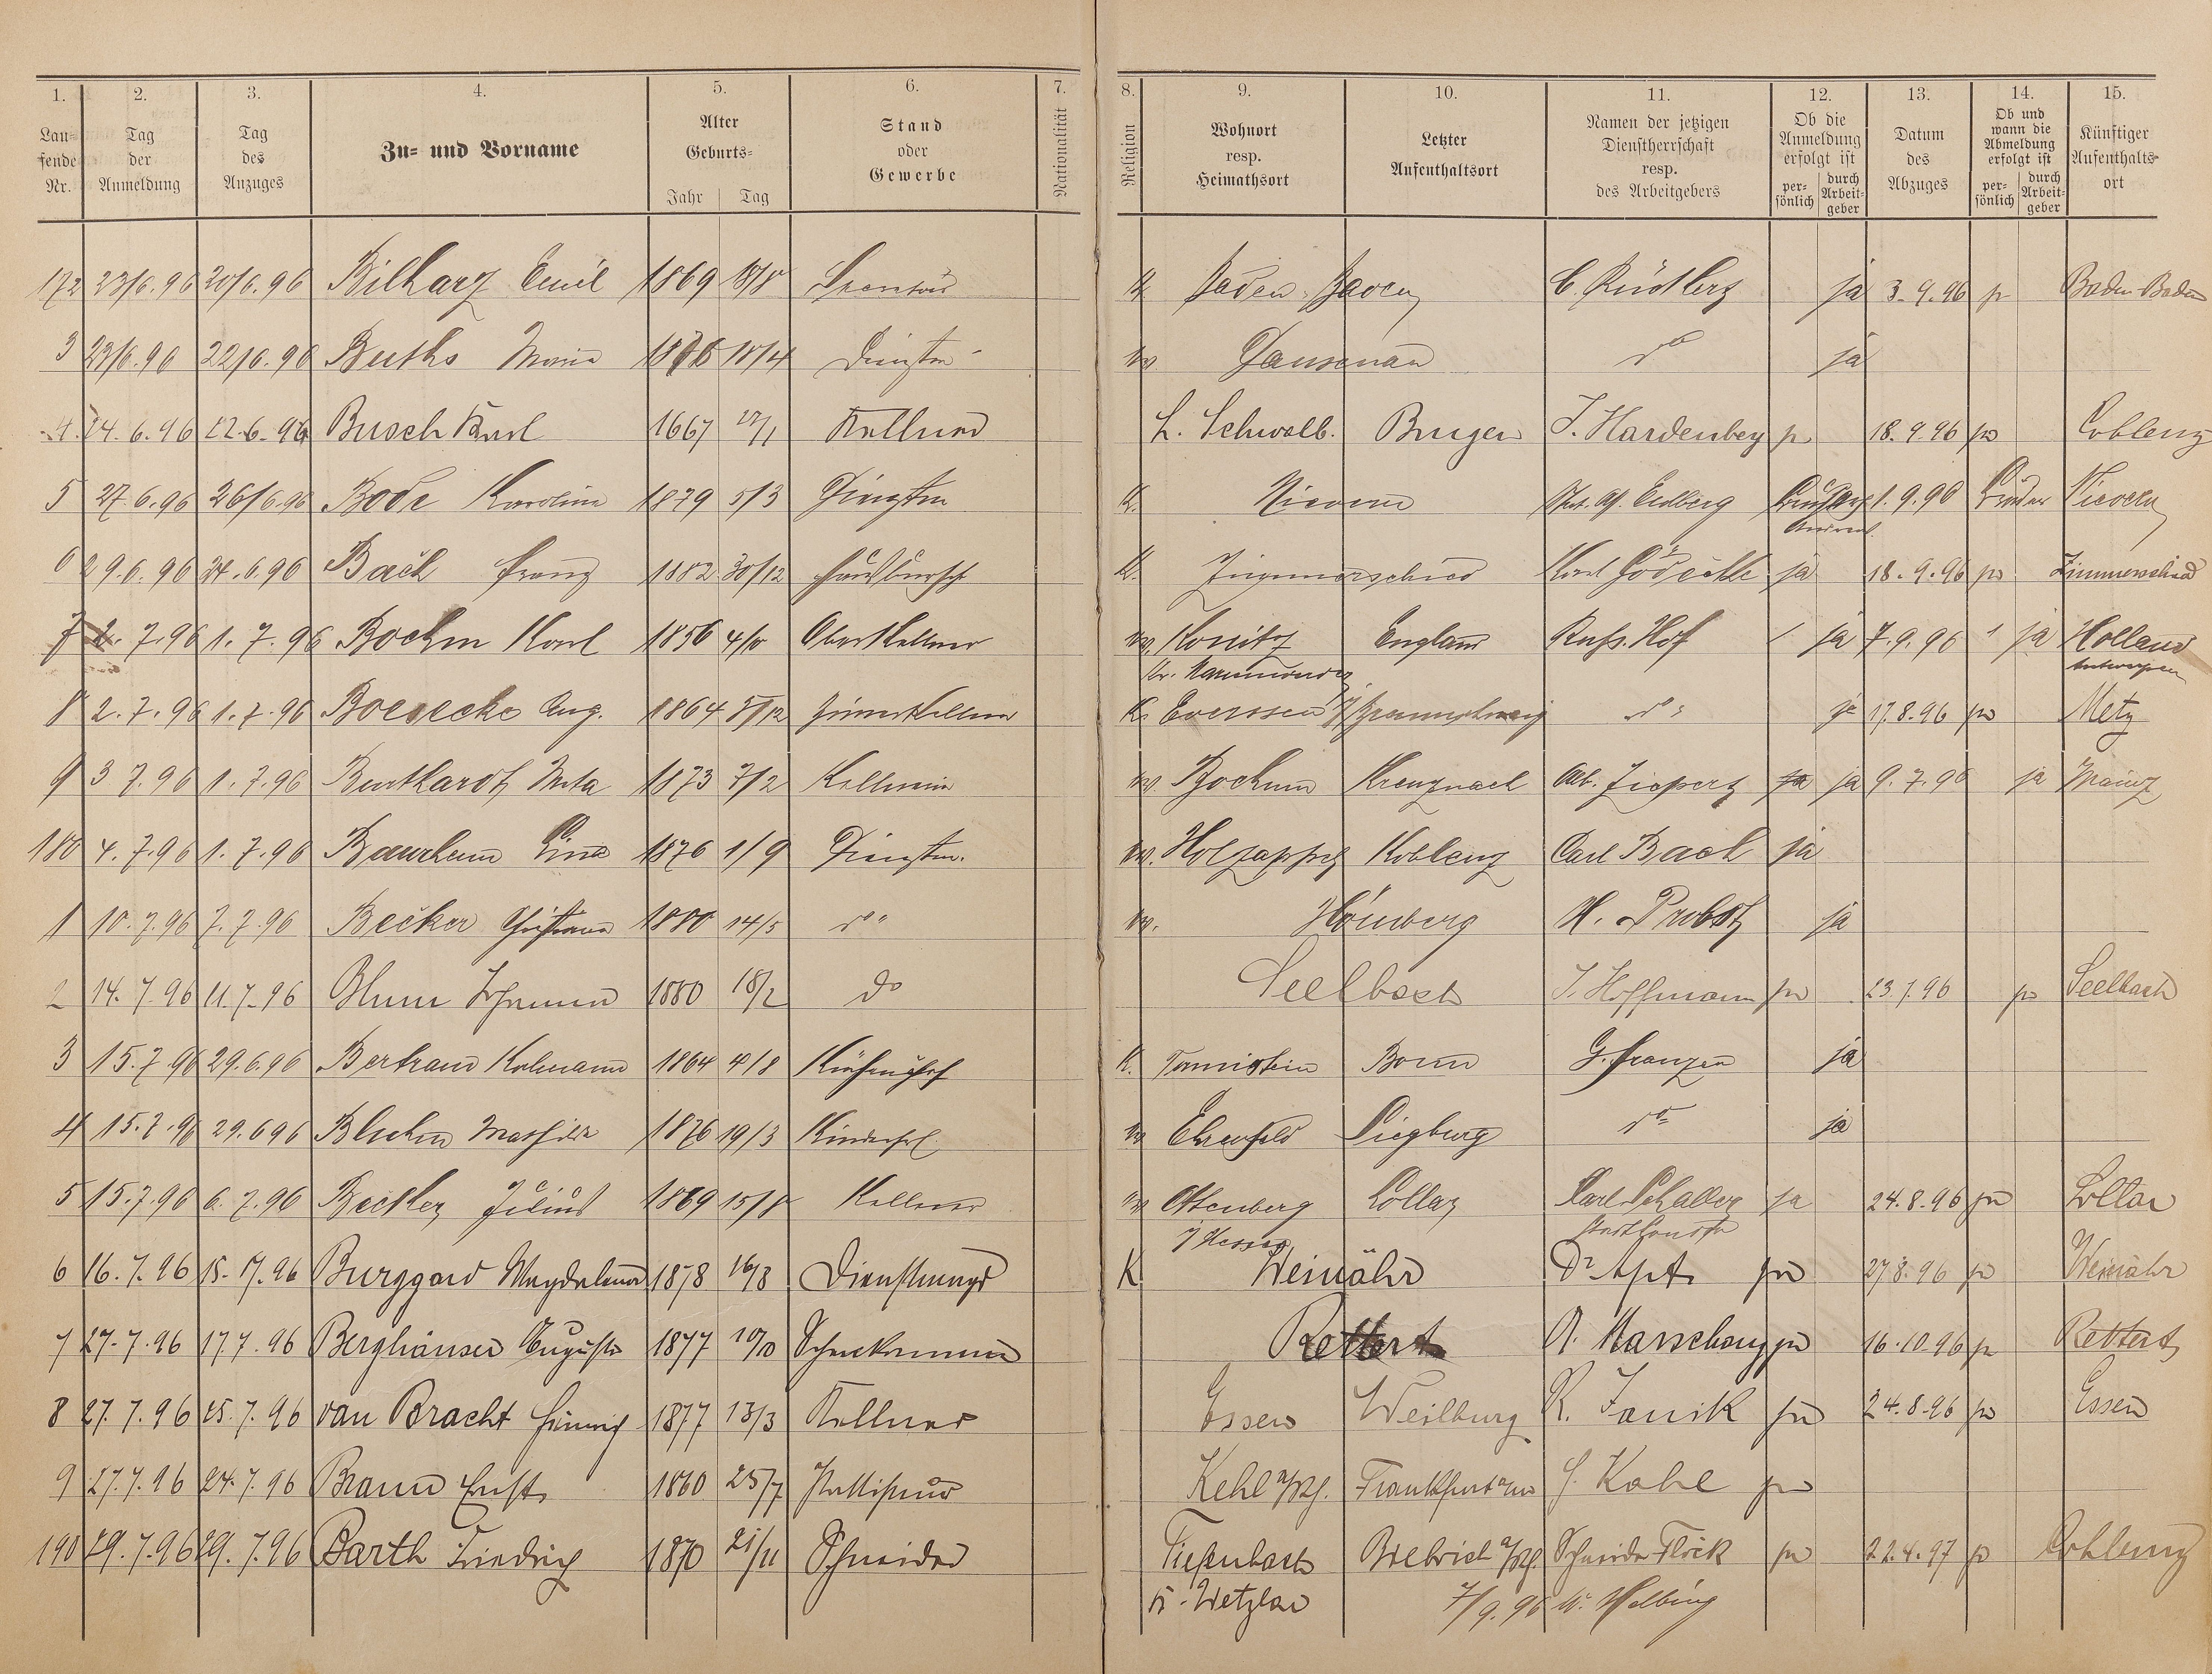 1. 2. 3. 4. 5. 6. 7. 8. 9. 10. 11. 12. 13. 14. 15.
Lau= fende Nr. Tag der Anmeldung Tag des Anzuges Zu= und Vorname Alter Geburts= Jahr Tag Stand oder Gewerbe Nationalität Religion Wohnort resp. Heimathsort Letzter Aufenthaltsort Namen der jetzigen Dienstherrschaft resp. des Arbeitgebers Ob die Anmeldung erfolgt ist per= sönlich durch Arbeit= geber Datum des Abzuges Ob und wann die Abmeldung erfolgt ist per= sönlich durch Arbeit= geber Künftiger Aufenthalts= ort
172 23/6.96 20/6.96 Bilharz Emil 1869 18/8 K Baden-Baden ja 3.9.96 p Baden-Baden
3 23/6.96 22/6.96 Buths Maria 18/4 Dienstm. Dausenau do ja
4. 24.6.96 22.6.96 Busch Karl 1667 27/1 Kellner L. Schwalb. Bingen J. Hardenberg p 18.9.96 p Coblenz
5 27.6.96 26/6.96 Bode Karoline 1879 5/3 Dienstm K. Nievern 1.9.96 Bruder Nievern
6 29.6.96 24.6.96 Bach Franz 1882 30/12 Hausbursch K. Zimmerschied Karl Gödecke ja 18.9.96 p Zimmerschied
7 2. 7.96 1.7.96 Boehm Karl 1856 4/10 Oberkellner Konitz England Russ. Hof / ja 7.9.96 1 ja Holland
Antwerpen
8 2.7.96 1.7.96 Boesecke Aug. 1864 5/12 Zimmerkellner K. Eversen Braunschweig do ja 17.8.96 p Metz
9 3 7.96 1.7.96 Burkhardt Meta 1873 7/2 Kellnerin Bochum Kreuznach ja ja 9.7.96 ja Mainz
180 4.7.96 1.7.96 Lina 1876 1/9 Dienstm. Holzappel Koblenz Carl Bach ja
1 10.7.96 7.7.96 Becker Christiane 1880 14/5 do Hömberg H. Probst ja
2 14.7.96 11.7.96 Blum Johanna 1880 18/2 do Seelbach J. Hoffmann p 23.7.96 p Seelbach
3 15.7.96 29.6.96 Bertram 1864 4/8 Küchenchef K. Bonn G. Franzen ja
4 15.7.96 29.6 96 Bluhm Mathilde 1876 19/3 Kinderfrl. Ehrenfeld Siegburg do ja
5 15.7.96 6.7.96 Becker Julius 1869 15/8 Kellner Lollar Karl Schaller ja 24.8.96 p Lollar
i/Hessen
6 16.7.96 15.7.96 Burggard Magdalena 1878 16/8 Dienstmagd K Weinähr Dr Apt. p 27.8.96 p Weinähr
7 27.7.96 17.7.96 Berghäuser Auguste 1877 10/10 Rettert p 16.10.96 p Rettert
8 27.7.96 25.7.96 van Bracht Heinrich 1877 13/3 Kellner Essen Weilburg R. Janik p 24.8.96 p Essen
9 27.7.96 24.7.96 Braun Ernst 1860 25/7 Kehl a/Rh. Frankfurt a/M Kahl p
190 29.7.96 29.7.96 Barth Friedrich 1870 21/11 Schneider Tiefenbach Biebrich a/Rh. Schneider Flöck p 22.4.97 p Coblenz
K. Wetzlar 7/9.96 W. Helbing